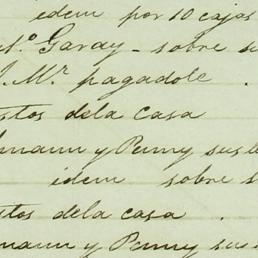 idem por 10 cajas
Garay - sobre
J. Mr. pagadole
tos dela casa
mann y Penny sus
idem sobre s
tos dela casa
mann y Penny sus